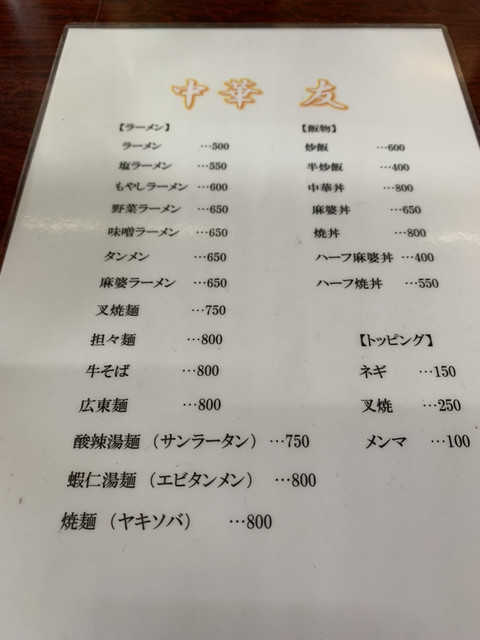 中華 友
【ラーメン】
ラーメン …500
塩ラーメン …550
もやしラーメン …600
野菜ラーメン …650
味噌ラーメン …650
タンメン …650
麻婆ラーメン …650
叉焼麺 …750
担々麺 …800
牛そば …800
広東麺 …800
酸辣湯麺（サンラータン） …750
蝦仁湯麺（エビタンメン） …800
焼麺（ヤキソバ） …800
【飯物】
炒飯 …600
半炒飯 …400
中華丼 …800
麻婆丼 …650
焼丼 …800
ハーフ麻婆丼 …400
ハーフ焼丼 …550
【トッピング】
ネギ …150
叉焼 …250
メンマ …100